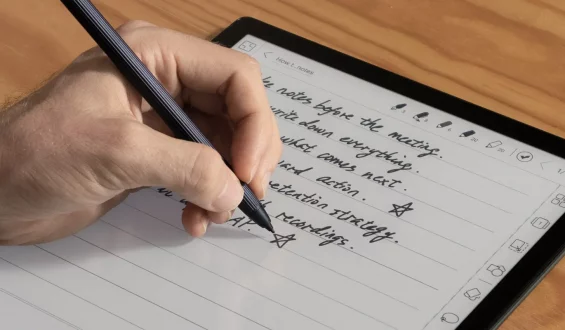 How I notes
notes before the meeting.
write down everything.
what comes next.
and action. ☆
retention strategy.
recordings.
☆